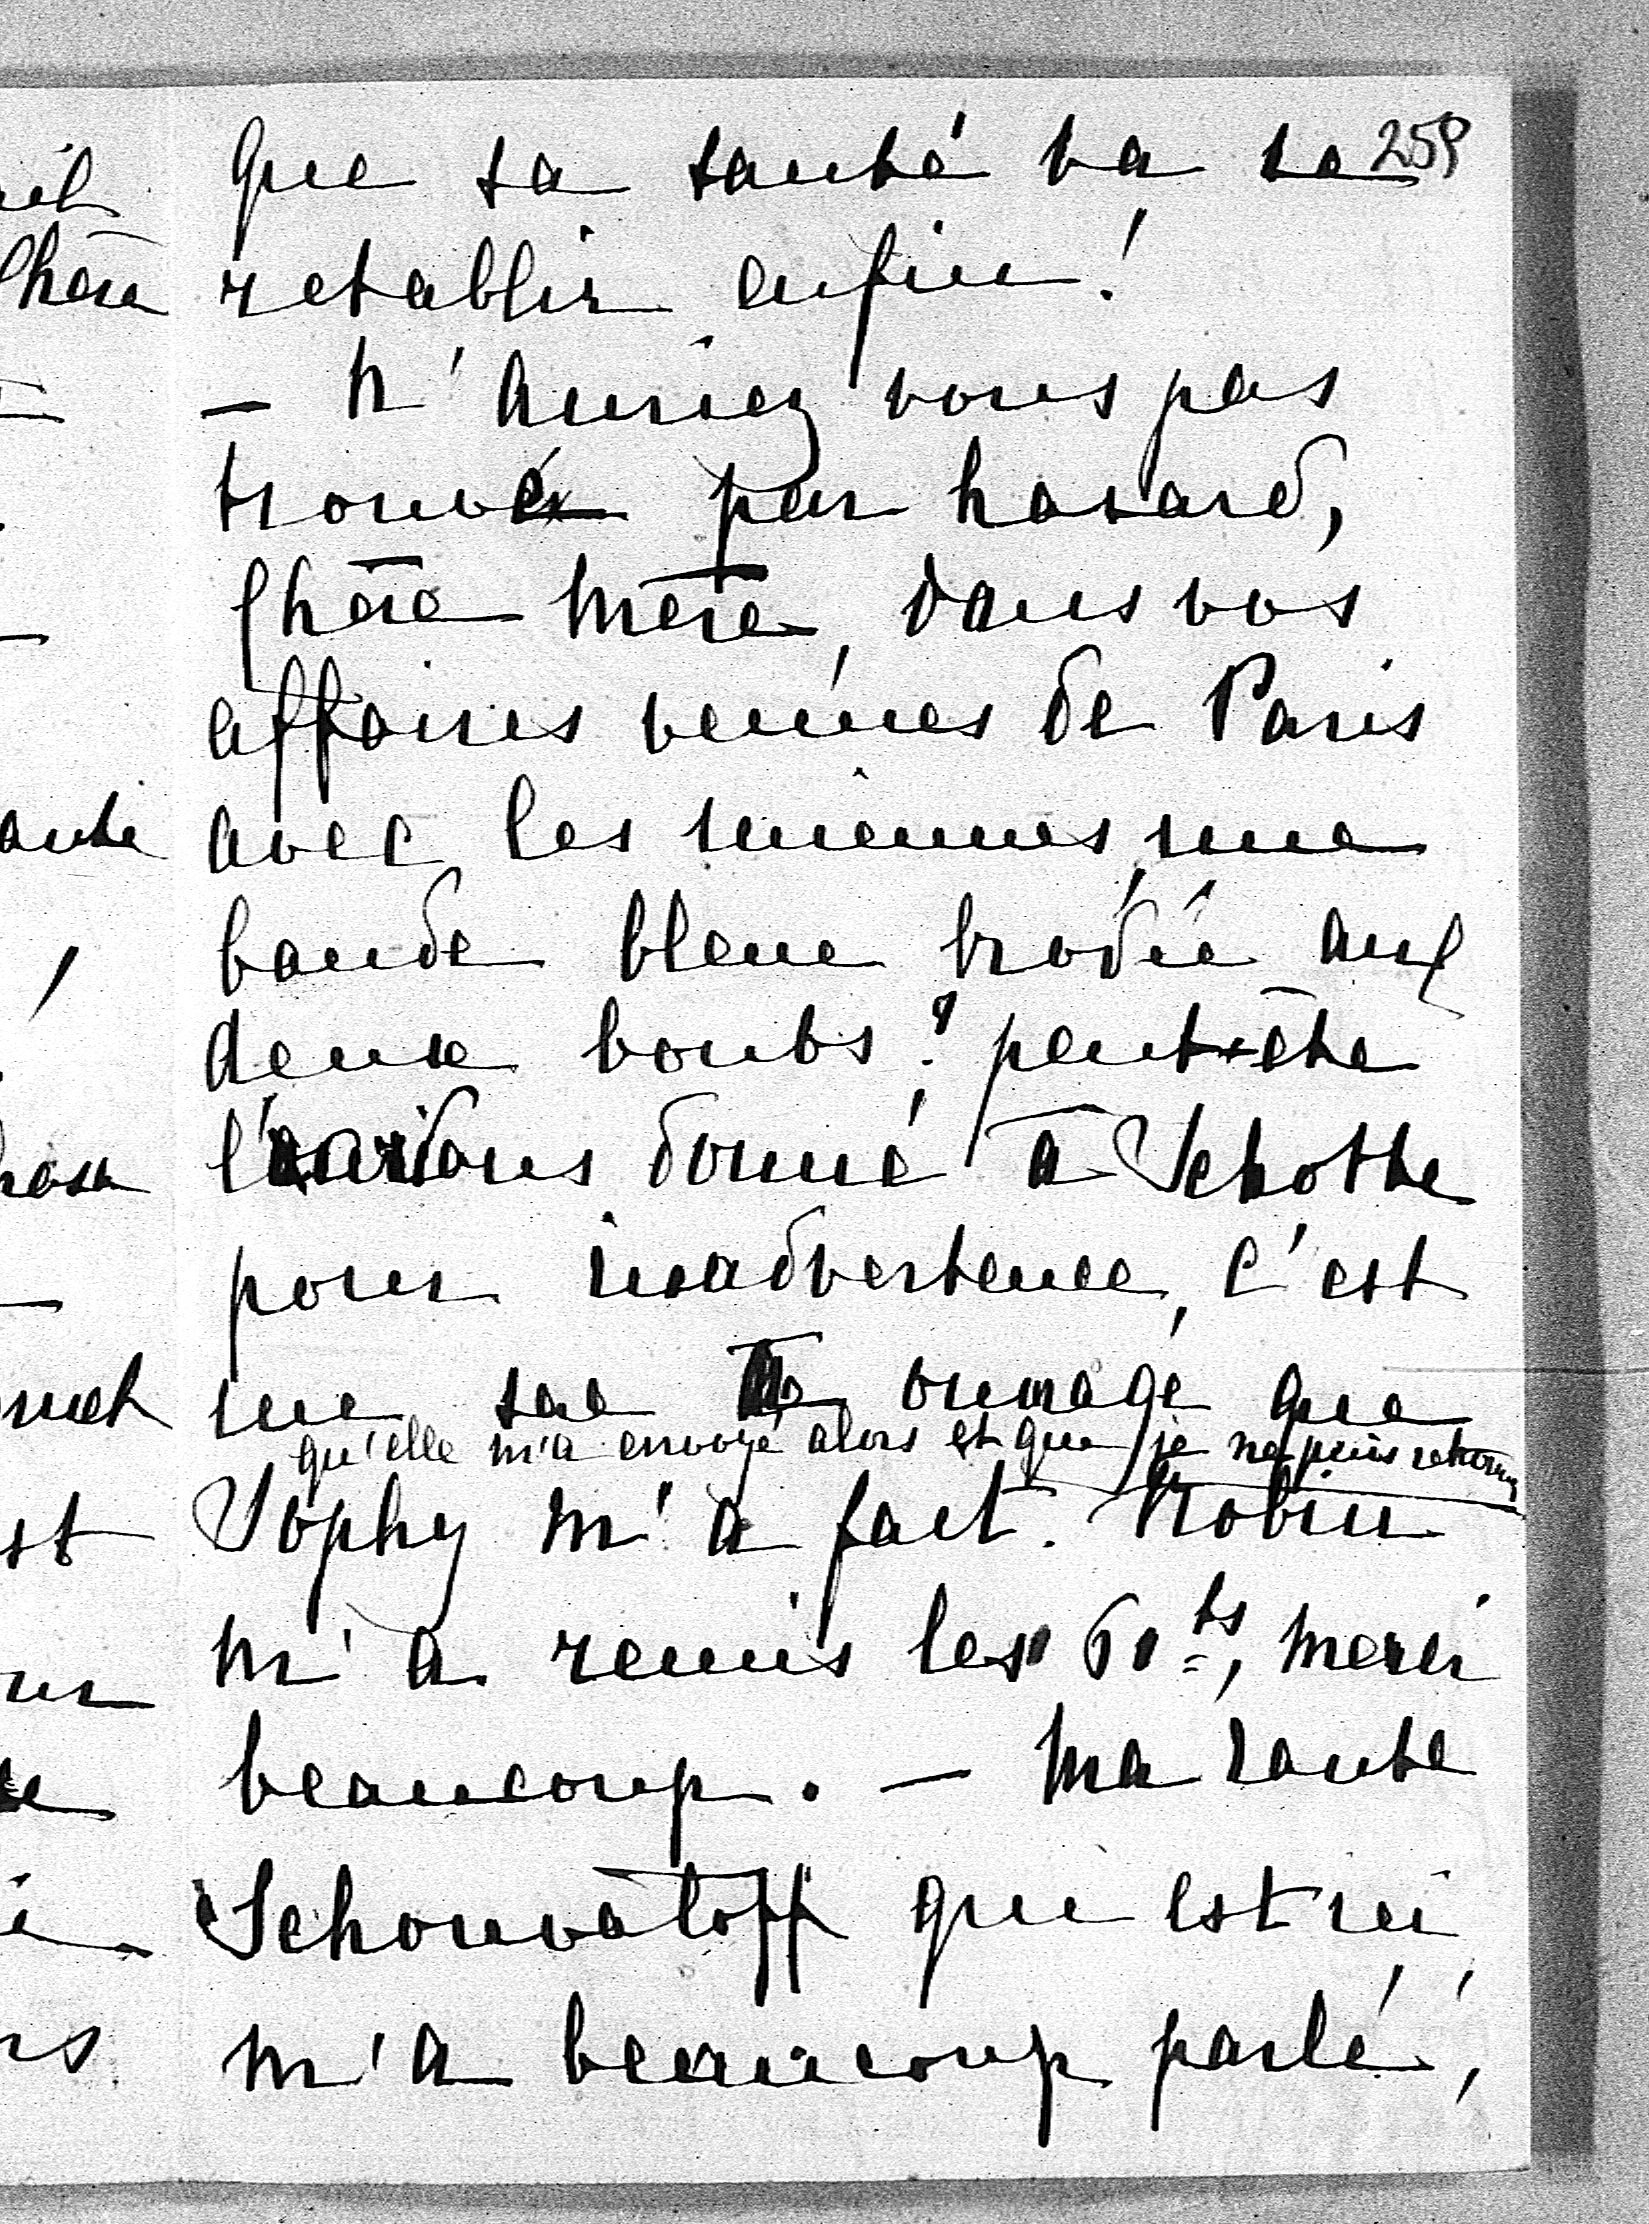 259
que sa santé va se
retablir enfin!
– N'auriez vous pas
trouvé par hasard,
Chère Mère, dans vos
affaires venues de Paris
avec les miennes, une
bande bleue brodée aux
deux bouts? peut-être
l'avions donné à Schotte
pour inadvertence, c'est
une ouvrage que
qu'elle m'a envoyé alors et que je ne puis
Sophy m'a fait. Robin
m'a remis les merci
beaucoup. – Ma tante
Schouvaloff qui est ici,
m'a beaucoup parlé,